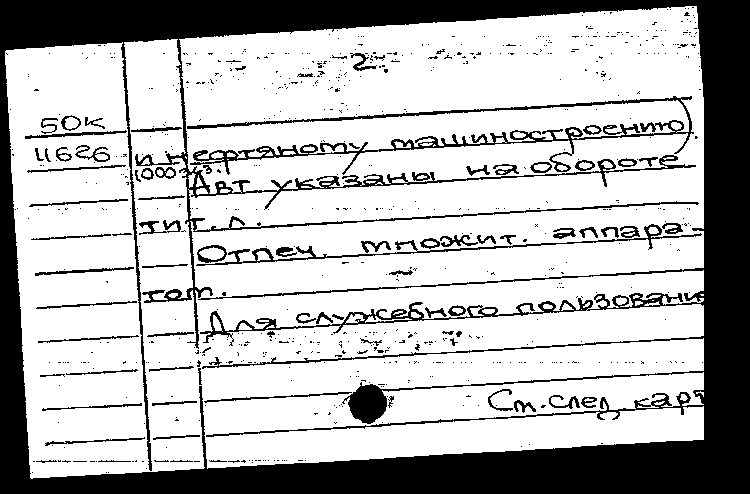 2.
50К
11626 и нефтяному машиностроению).
1000 экз. Авт указаны на обороте
тит. л.
Отпеч. множит. аппара-
том.
Для служебного пользования
См. след. карт